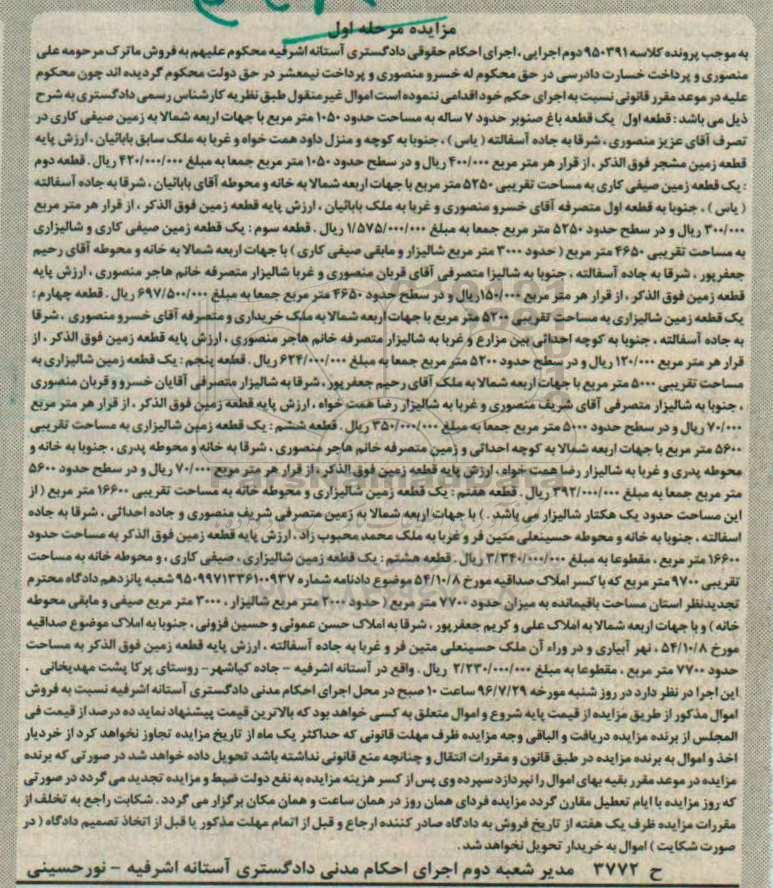 مزایده مرحله اول
به موجب پرونده کلاسه ۹۵۰۳۹۱ دوم اجرایی، اجرای احکام حقوقی دادگستری آستانه اشرفیه محکوم علیهم به فروش ماترک مرحومه علی
منصوری و پرداخت خسارت دادرسی در حق محکوم له خسرو منصوری و پرداخت نیمعشر در حق دولت محکوم گردیده اند چون محکوم
علیه در موعد مقرر قانونی نسبت به اجرای حکم خود اقدامی ننموده است اموال غیر منقول طبق نظریه کارشناس رسمی دادگستری به شرح
ذیل می باشد: قطعه اول یک قطعه باغ صنوبر حدود ۷ ساله به مساحت حدود ۱۰۵۰ متر مربع با جهات اربعه شمالا به زمین صیفی کاری در
تصرف آقای عزیز منصوری، شرقا به جاده آسفالته (یاس)، جنوبا به کوچه و منزل داود همت خواه و غربا به ملک سابق بابائیان، ارزش پایه
قطعه زمین مشجر فوق الذکر، از قرار هر متر مربع ۴۰۰/۰۰۰ ریال و در سطح حدود ۱۰۵۰ متر مربع جمعا به مبلغ ۴۲۰/۰۰۰/۰۰۰ ریال. قطعه دوم
: یک قطعه زمین صیفی کاری به مساحت تقریبی ۵۲۵۰ متر مربع با جهات اربعه شمالا به خانه و محوطه آقای بابائیان، شرقا به جاده آسفالته
(یاس)، جنوبا به قطعه اول متصرفه آقای خسرو منصوری و غربا به ملک بابائیان، ارزش پایه قطعه زمین فوق الذکر، از قرار هر متر مربع
۳۰۰/۰۰۰ ریال و در سطح حدود ۵۲۵۰ متر مربع جمعا به مبلغ ۱/۵۷۵/۰۰۰/۰۰۰ ریال. قطعه سوم: یک قطعه زمین صیفی کاری و شالیزاری
به مساحت تقریبی ۴۶۵۰ متر مربع (حدود ۳۰۰۰ متر مربع شالیزار و مابقی صیفی کاری) با جهات اربعه شمالا به خانه و محوطه آقای رحیم
جعفرپور، شرقا به جاده آسفالته، جنوبا به شالیزا متصرفی آقای قربان منصوری و غربا شالیزار متصرفه خانم هاجر منصوری، ارزش پایه
قطعه زمین فوق الذکر، از قرار هر متر مربع ۱۵۰/۰۰۰ ریال و در سطح حدود ۴۶۵۰ متر مربع جمعا به مبلغ ۶۹۷/۵۰۰/۰۰۰ ریال. قطعه چهارم:
یک قطعه زمین شالیزاری به مساحت تقریبی ۵۲۰۰ متر مربع با جهات اربعه شمالا به ملک خریداری و متصرفه آقای خسرو منصوری، شرقا
به جاده آسفالته، جنوبا به کوچه احداثی بین مزارع و غربا به شالیزار متصرفه خانم هاجر منصوری، ارزش پایه قطعه زمین فوق الذکر، از
قرار هر متر مربع ۱۲۰/۰۰۰ ریال و در سطح حدود ۵۲۰۰ متر مربع جمعا به مبلغ ۶۲۴/۰۰۰/۰۰۰ ریال. قطعه پنجم: یک قطعه زمین شالیزاری به
مساحت تقریبی ۵۰۰۰ متر مربع با جهات اربعه شمالا به ملک آقای رحیم جعفرپور، شرقا به شالیزار متصرفی آقایان خسرو و قربان منصوری
، جنوبا به شالیزار متصرفی آقای شریف منصوری و غربا به شالیزار رضا همت خواه، ارزش پایه قطعه زمین فوق الذکر، از قرار هر متر مربع
۷۰/۰۰۰ ریال و در سطح حدود ۵۰۰۰ متر مربع جمعا به مبلغ ۳۵۰/۰۰۰/۰۰۰ ریال. قطعه ششم: یک قطعه زمین شالیزاری به مساحت تقریبی
۵۶۰۰ متر مربع با جهات اربعه شمالا به کوچه احداثی و زمین متصرفه خانم هاجر منصوری، شرقا به خانه و محوطه پدری، جنوبا به خانه و
محوطه پدری و غربا به شالیزار رضا همت خواه، ارزش پایه قطعه زمین فوق الذکر، از قرار هر متر مربع ۷۰/۰۰۰ ریال و در سطح حدود ۵۶۰۰
متر مربع جمعا به مبلغ ۳۹۲/۰۰۰/۰۰۰ ریال. قطعه هفتم: یک قطعه زمین شالیزاری و محوطه خانه به مساحت تقریبی ۱۶۶۰۰ متر مربع (از
این مساحت حدود یک هکتار شالیزار می باشد.) با جهات اربعه شمالا به زمین متصرفی شریف منصوری و جاده احداثی، شرقا به جاده
اسفالته، جنوبا به خانه و محوطه حسینعلی متین فر و غربا به ملک محمد محبوب زاد، ارزش پایه قطعه زمین فوق الذکر به مساحت حدود
۱۶۶۰۰ متر مربع، مقطوعا به مبلغ ۳/۳۴۰/۰۰۰/۰۰۰ ریال. قطعه هشتم: یک قطعه زمین شالیزاری، صیفی کاری، و محوطه خانه به مساحت
تقریبی ۹۷۰۰ متر مربع که با کسر املاک صداقیه مورخ ۵۴/۱۰/۸ موضوع دادنامه شماره ۹۵۰۹۹۷۱۳۳۶۱۰۰۹۳۷ شعبه پانزدهم دادگاه محترم
تجدیدنظر استان مساحت باقیمانده به میزان حدود ۷۷۰۰ متر مربع (حدود ۲۰۰۰ متر مربع شالیزار، ۳۰۰۰ متر مربع صیفی و مابقی محوطه
خانه) و با جهات اربعه شمالا به املاک علی و کریم جعفرپور، شرقا به املاک حسن عموئی و حسین فزونی، جنوبا به املاک موضوع صداقیه
مورخ ۵۴/۱۰/۸، نهر آبیاری و در وراء آن ملک حسینعلی متین فر و غربا به جاده آسفالته، ارزش پایه قطعه زمین فوق الذکر به مساحت
حدود ۷۷۰۰ متر مربع، مقطوعا به مبلغ ۲/۲۳۰/۰۰۰/۰۰۰ ریال. واقع در آستانه اشرفیه - جاده کیاشهر- روستای پرکا پشت مهدیخانی.
این اجرا در نظر دارد در روز شنبه مورخه ۹۶/۷/۲۹ ساعت ۱۰ صبح در محل اجرای احکام مدنی دادگستری آستانه اشرفیه نسبت به فروش
اموال مذکور از طریق مزایده از قیمت پایه شروع و اموال متعلق به کسی خواهد بود که بالاترین قیمت پیشنهاد نماید ده درصد از قیمت فی
المجلس از برنده مزایده دریافت و الباقی وجه مزایده ظرف مهلت قانونی که حداکثر یک ماه از تاریخ مزایده تجاوز نخواهد کرد از خردیار
اخذ و اموال به برنده مزایده در طبق قانون و مقررات انتقال و چنانچه منع قانونی نداشته باشد تحویل داده خواهد شد در صورتی که برنده
مزایده در موعد مقرر بقیه بهای اموال را نپردازد سپرده وی پس از کسر هزینه مزایده به نفع دولت ضبط و مزایده تجدید می گردد در صورتی
که روز مزایده با ایام تعطیل مقارن گردد مزایده فردای همان روز در همان ساعت و همان مکان برگزار می گردد. شکایت راجع به تخلف از
مقررات مزایده ظرف یک هفته از تاریخ فروش به دادگاه صادر کننده ارجاع و قبل از اتمام مهلت مذکور یا قبل از اتخاذ تصمیم دادگاه (در
صورت شکایت) اموال به خریدار تحویل نخواهد شد.
ح ۳۷۷۲ مدیر شعبه دوم اجرای احکام مدنی دادگستری آستانه اشرفیه - نورحسینی